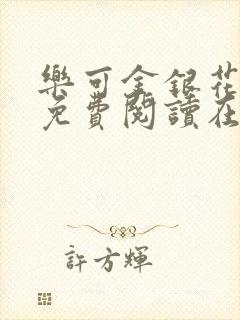 樂可金銀花
免費閱讀在
許方輝